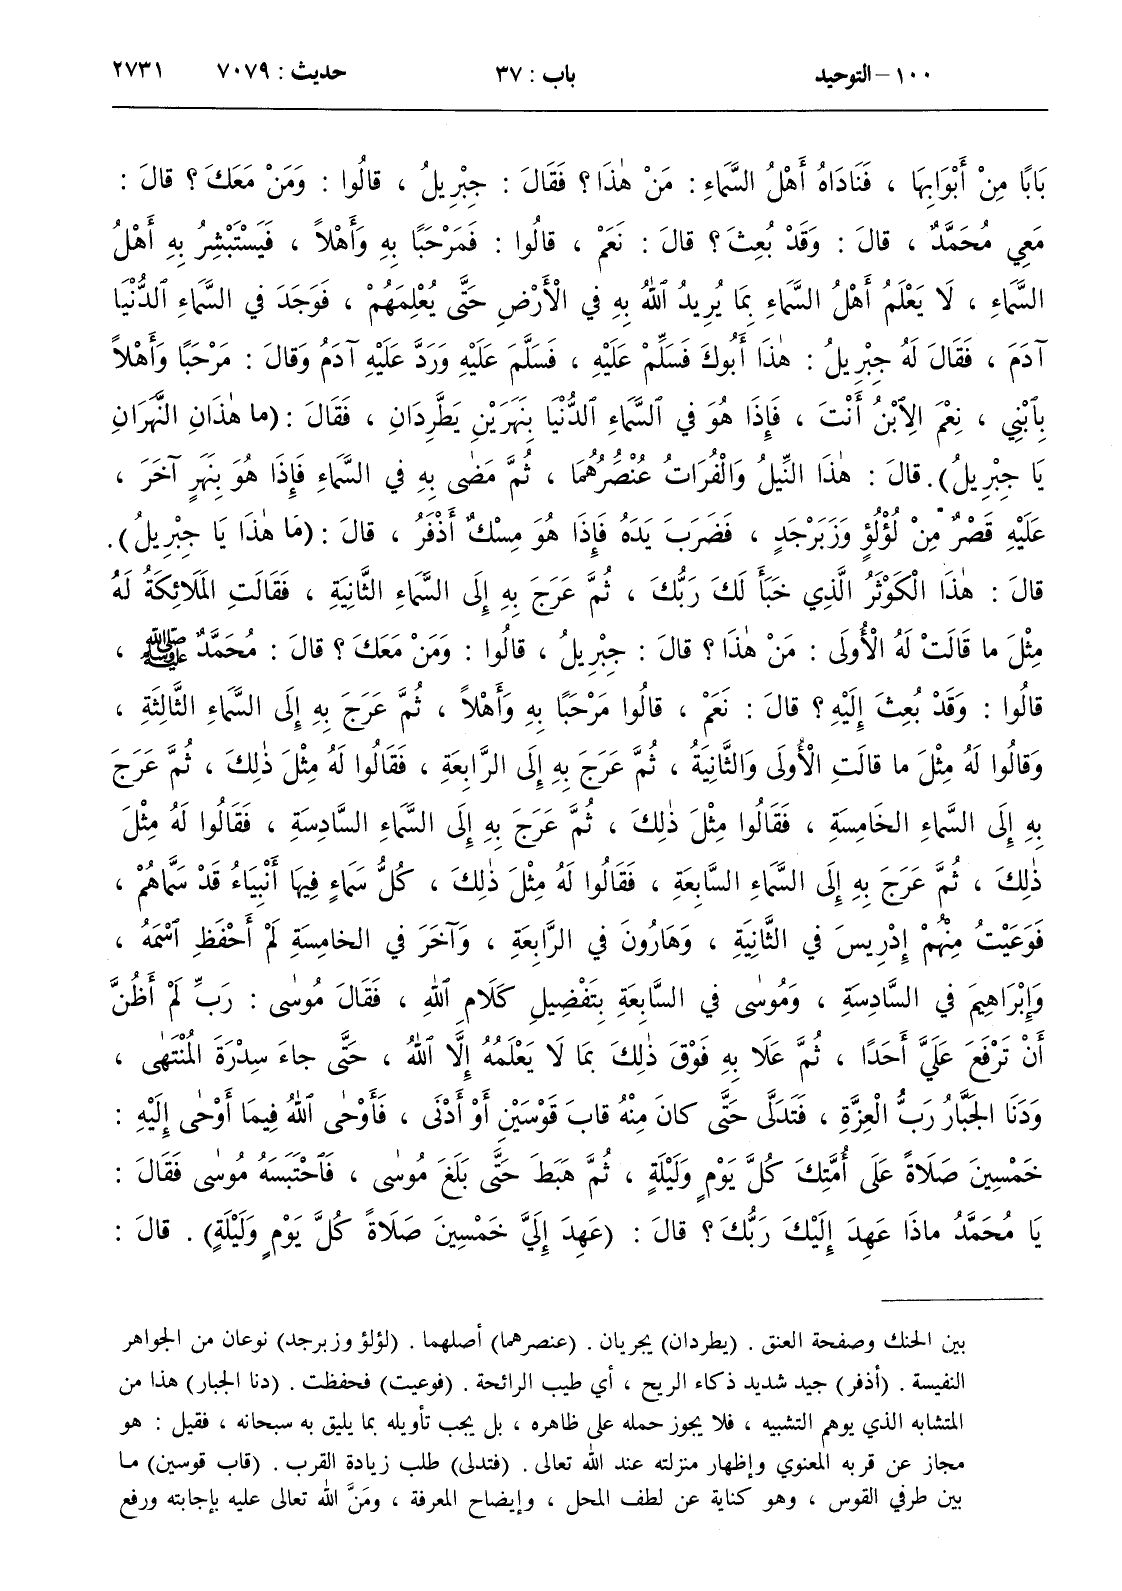 ١٠٠ - التوحيد باب : ٣٧ حديث : ٧٠٧٩ ٢٧٣١
بَابًا مِنْ أَبْوَابِهَا ، فَنَادَاهُ أَهْلُ السَّمَاءِ : مَنْ هٰذَا ؟ فَقَالَ : جِبْرِيلُ ، قالُوا : وَمَنْ مَعَكَ ؟ قالَ :
مَعِي مُحَمَّدٌ ، قالَ : وَقَدْ بُعِثَ ؟ قالَ : نَعَمْ ، قالُوا : فَمَرْحَبًا بِهِ وَأَهْلاً ، فَيَسْتَبْشِرُ بِهِ أَهْلُ
السَّمَاءِ ، لَا يَعْلَمُ أَهْلُ السَّمَاءِ بِمَا يُرِيدُ ٱللهُ بِهِ في الْأَرْضِ حَتَّى يُعْلِمَهُمْ ، فَوَجَدَ في السَّمَاءِ ٱلدُّنْيَا
آدَمَ ، فَقَالَ لَهُ جِبْرِيلُ : هٰذَا أَبُوكَ فَسَلِّمْ عَلَيْهِ ، فَسَلَّمَ عَلَيْهِ وَرَدَّ عَلَيْهِ آدَمُ وَقالَ : مَرْحَبًا وَأَهْلاً
بِٱبْنِي ، نِعْمَ الِٱبْنُ أَنْتَ ، فَإِذَا هُوَ في ٱلسَّمَاءِ ٱلدُّنْيَا بِنَهَرَيْنِ يَطَّرِدَانِ ، فَقَالَ : (ما هٰذَانِ النَّهَرَانِ
يَا جِبْرِيلُ). قالَ : هٰذَا النِّيلُ وَالْفُرَاتُ عُنْصُرُهُمَا ، ثُمَّ مَضٰى بِهِ في السَّمَاءِ فَإِذَا هُوَ بِنَهَرٍ آخَرَ ،
عَلَيْهِ قَصْرٌ مِنْ لُؤْلُؤٍ وَزَبَرْجَدٍ ، فَضَرَبَ يَدَهُ فَإِذَا هُوَ مِسْكٌ أَذْفَرُ ، قالَ : (مَا هٰذَا يَا جِبْرِيلُ).
قالَ : هٰذَا الْكَوْثَرُ الَّذِي خَبَأَ لَكَ رَبُّكَ ، ثُمَّ عَرَجَ بِهِ إِلَى السَّمَاءِ الثَّانِيَةِ ، فَقَالَتِ المَلَائِكَةُ لَهُ
مِثْلَ ما قَالَتْ لَهُ الْأُولَى : مَنْ هٰذَا ؟ قالَ : جِبْرِيلُ ، قالُوا : وَمَنْ مَعَكَ ؟ قالَ : مُحَمَّدٌ ﷺ ،
قالُوا : وَقَدْ بُعِثَ إِلَيْهِ ؟ قالَ : نَعَمْ ، قالُوا مَرْحَبًا بِهِ وَأَهْلاً ، ثُمَّ عَرَجَ بِهِ إِلَى السَّمَاءِ الثَّالِثَةِ ،
وَقالُوا لَهُ مِثْلَ ما قالَتِ الْأُولَى وَالثَّانِيَةُ ، ثُمَّ عَرَجَ بِهِ إِلَى الرَّابِعَةِ ، فَقَالُوا لَهُ مِثْلَ ذٰلِكَ ، ثُمَّ عَرَجَ
بِهِ إِلَى السَّمَاءِ الخَامِسَةِ ، فَقَالُوا مِثْلَ ذٰلِكَ ، ثُمَّ عَرَجَ بِهِ إِلَى السَّمَاءِ السَّادِسَةِ ، فَقَالُوا لَهُ مِثْلَ
ذٰلِكَ ، ثُمَّ عَرَجَ بِهِ إِلَى السَّمَاءِ السَّابِعَةِ ، فَقَالُوا لَهُ مِثْلَ ذٰلِكَ ، كُلُّ سَمَاءٍ فِيهَا أَنْبِيَاءُ قَدْ سَمَّاهُمْ ،
فَوَعَيْتُ مِنْهُمْ إِدْرِيسَ في الثَّانِيَةِ ، وَهَارُونَ في الرَّابِعَةِ ، وَآخَرَ في الخامِسَةِ لَمْ أَحْفَظِ ٱسْمَهُ ،
وَإِبْرَاهِيمَ في السَّادِسَةِ ، وَمُوسٰى في السَّابِعَةِ بِتَفْضِيلِ كَلَامِ ٱللهِ ، فَقَالَ مُوسٰى : رَبِّ لَمْ أَظُنَّ
أَنْ تَرْفَعَ عَلَيَّ أَحَدًا ، ثُمَّ عَلَا بِهِ فَوْقَ ذٰلِكَ بِمَا لَا يَعْلَمُهُ إِلَّا ٱللهُ ، حَتَّى جاءَ سِدْرَةَ المُنْتَهٰى ،
وَدَنَا الجَبَّارُ رَبُّ الْعِزَّةِ ، فَتَدَلَّى حَتَّى كانَ مِنْهُ قابَ قَوْسَيْنِ أَوْ أَدْنَى ، فَأَوْحٰى ٱللهُ فِيمَا أَوْحٰى إِلَيْهِ :
خَمْسِينَ صَلَاةً عَلَى أُمَّتِكَ كُلَّ يَوْمٍ وَلَيْلَةٍ ، ثُمَّ هَبَطَ حَتَّى بَلَغَ مُوسٰى ، فَٱحْتَبَسَهُ مُوسٰى فَقَالَ :
يَا مُحَمَّدُ ماذَا عَهِدَ إِلَيْكَ رَبُّكَ ؟ قالَ : (عَهِدَ إِلَيَّ خَمْسِينَ صَلَاةً كُلَّ يَوْمٍ وَلَيْلَةٍ) . قالَ :
بين الحنك وصفحة العنق . (يطردان) يجريان . (عنصرهما) أصلهما . (لؤلؤ وزبرجد) نوعان من الجواهر
النفيسة . (أذفر) جيد شديد ذكاء الريح ، أي طيب الرائحة . (فوعيت) فحفظت . (دنا الجبار) هذا من
المتشابه الذي يوهم التشبيه ، فلا يجوز حمله على ظاهره ، بل يجب تأويله بما يليق به سبحانه ، فقيل : هو
مجاز عن قربه المعنوي وإظهار منزلته عند الله تعالى . (فتدلى) طلب زيادة القرب . (قاب قوسين) ما
بين طرفي القوس ، وهو كناية عن لطف المحل ، وإيضاح المعرفة ، ومَنَّ الله تعالى عليه بإجابته ورفع